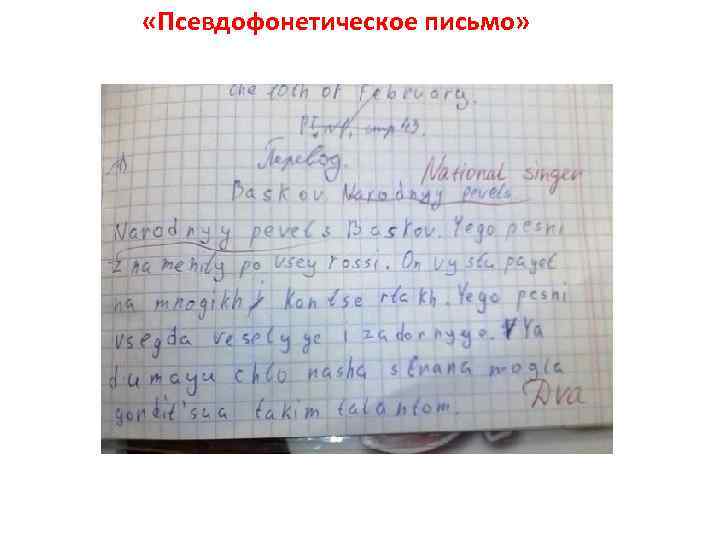 «Псевдофонетическое письмо»
the 10th of February.
P I, №1, стр 43.
1)
Перевод.
National singer
Baskov Narodnyy pevets
Narodnyy pevets Baskov. Yego pesni
znamenity po vsey rossi. On vystupayet
na mnogikh kontsertakh. Yego pesni
vsegda veselyye i zadornyye. Ya
dumayu chto nasha strana mogla
gordit'sua takim talantom.
Dva